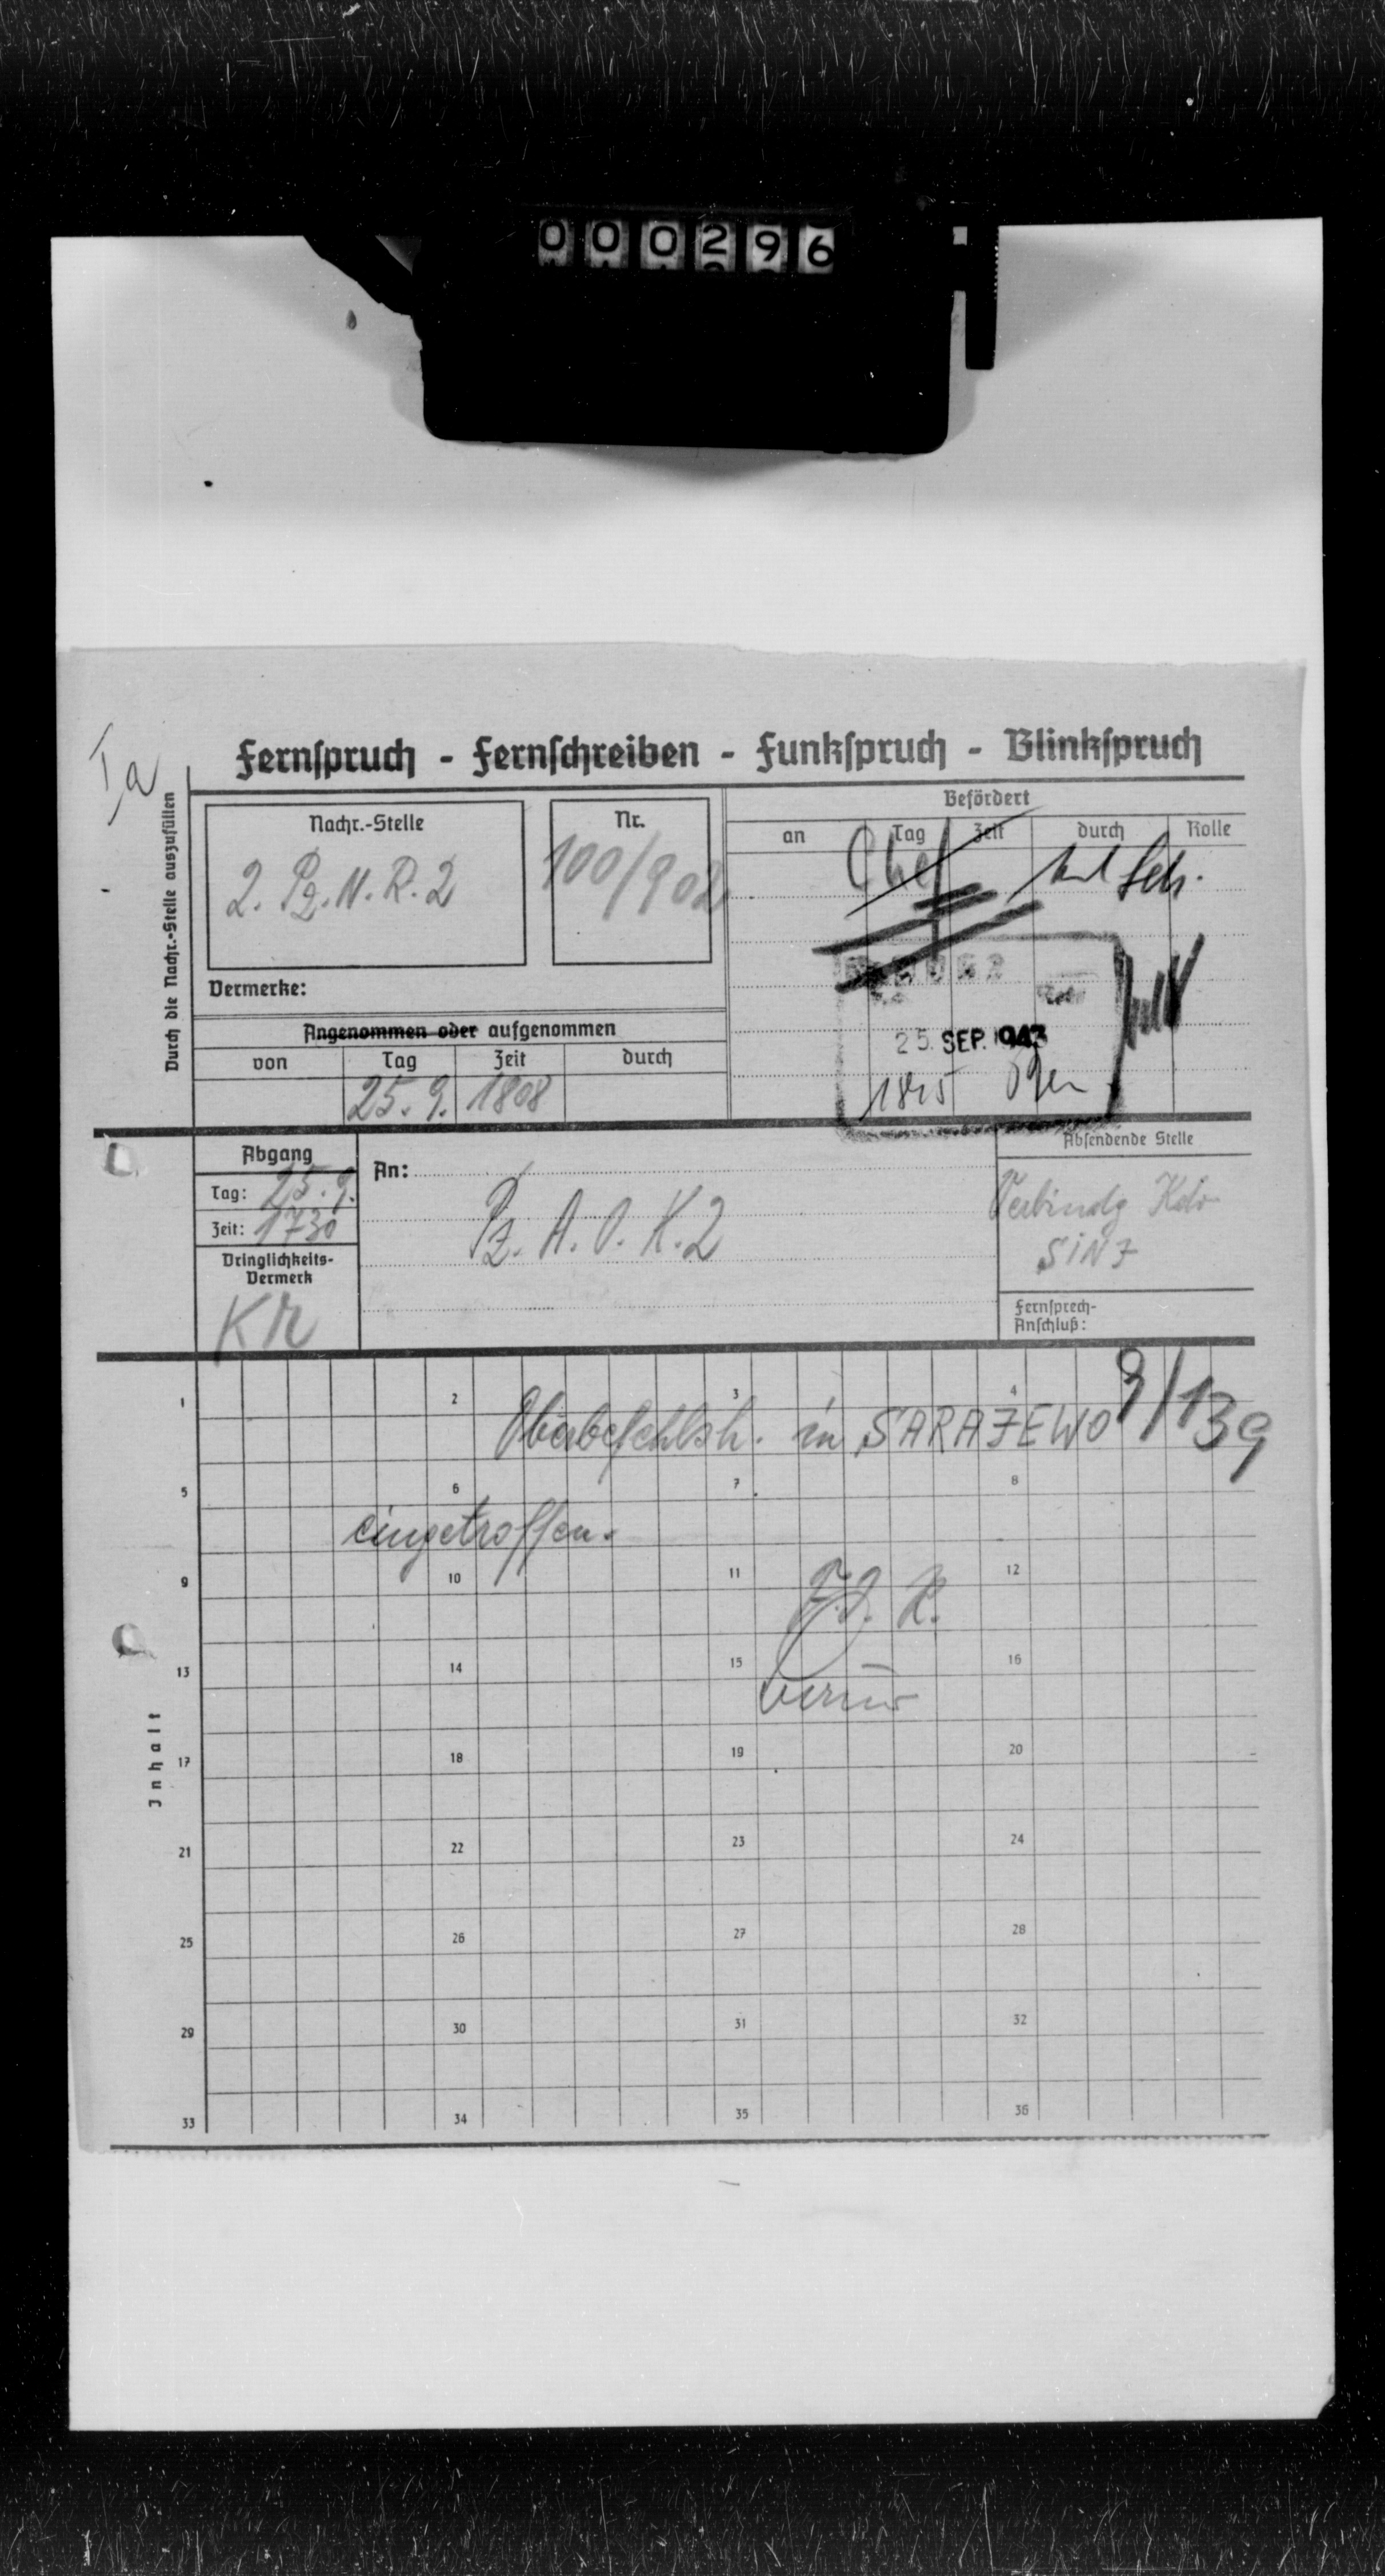 000296
Ia
Fernspruch - Fernschreiben - Funkspruch - Blinkspruch
Durch die Nachr.-Stelle auszufüllen
Nachr.-Stelle
2. Pz. N. R. 2
Nr.
100/902
Befördert
an Tag Zeit durch Rolle
Chef
Vermerke:
Angenommen oder aufgenommen
von Tag Zeit durch
25. 9. 1808
25. SEP. 1943
1815
Abgang
Tag: 25. 9.
Zeit: 1730
Dringlichkeits-
Vermerk
KR
An:
Pz. A. O. K. 2
Absendende Stelle
Verbindg Kdo
SINJ
Fernsprech-
Anschluß:
9/139
1 2 3 4
Oberbefehlsh. in SARAJEWO
5 6 7 8
eingetroffen.
9 10 11 12
13 14 15 16
Inhalt
17 18 19 20
21 22 23 24
25 26 27 28
29 30 31 32
33 34 35 36